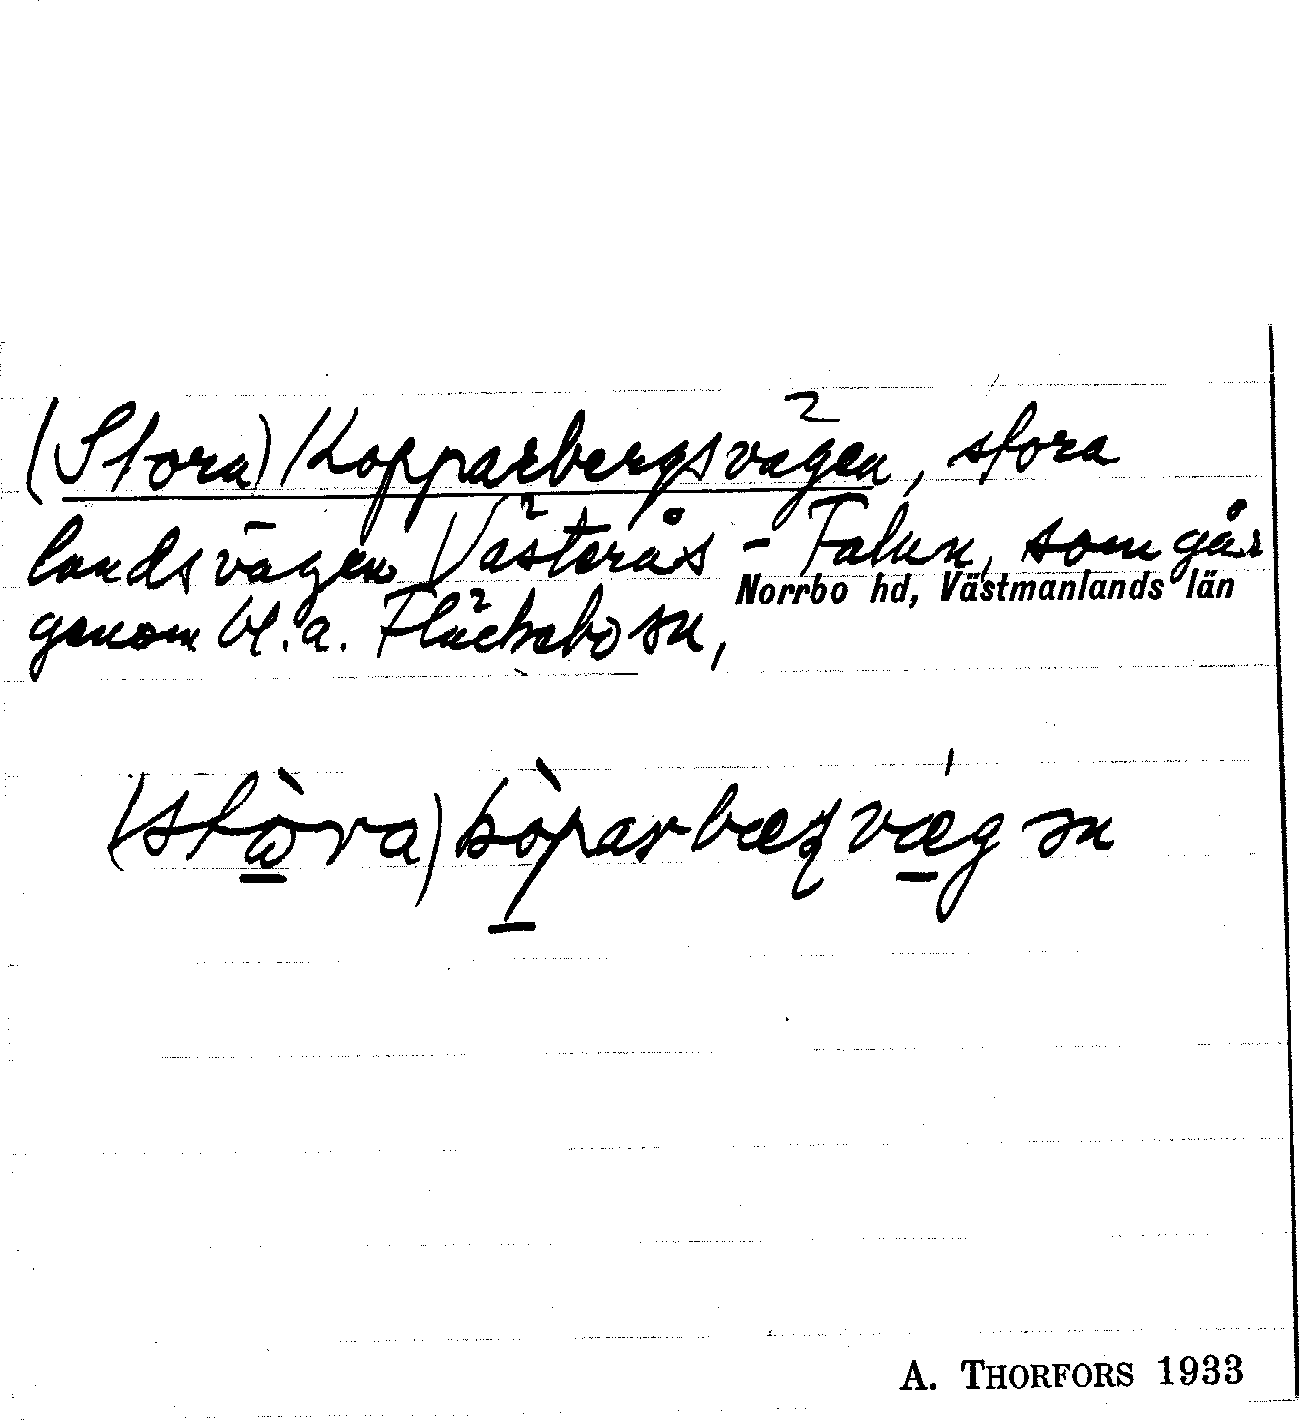 (Stora) Kopparbergsvägen, stora
landsvägen Västerås - Falun, som går
Norrbo hd, Västmanlands län
genom bl.a. Fläckebo sn,
(stɷ̀ra) kòparbæʐvǽgən
A. THORFORS 1933